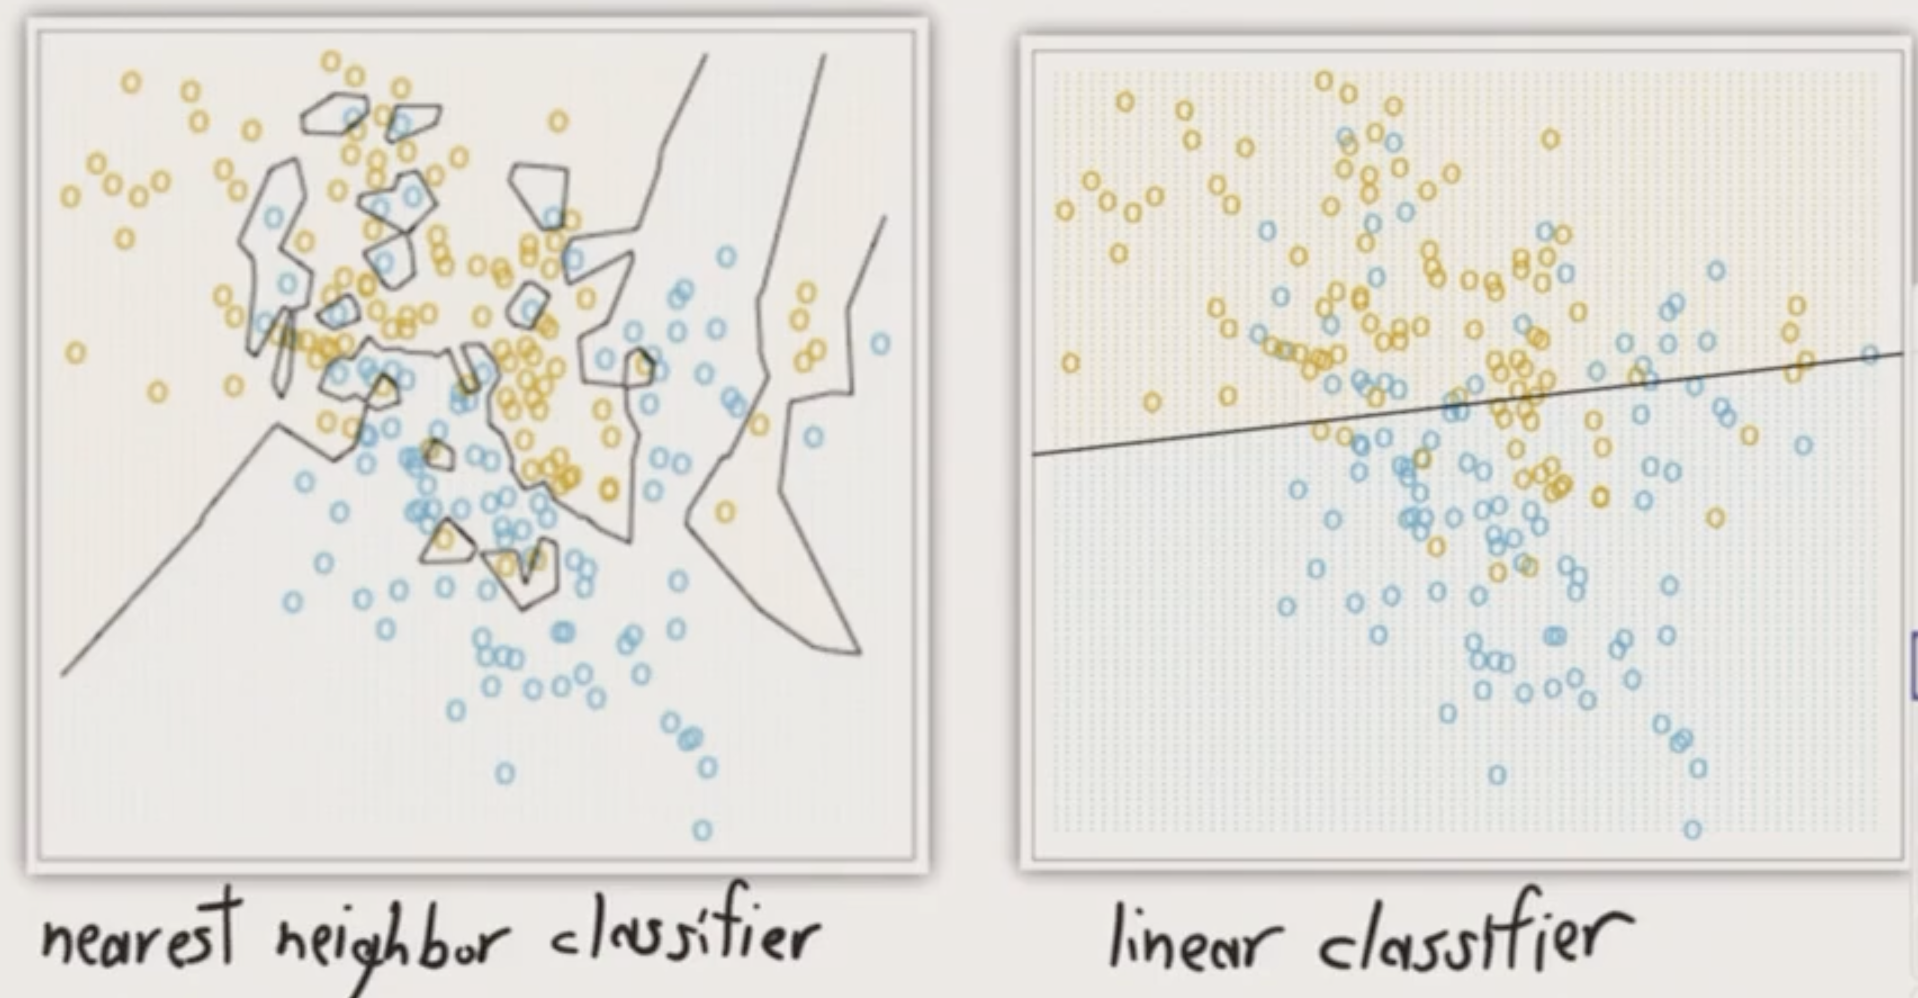 nearest neighbor classifier
linear classifier